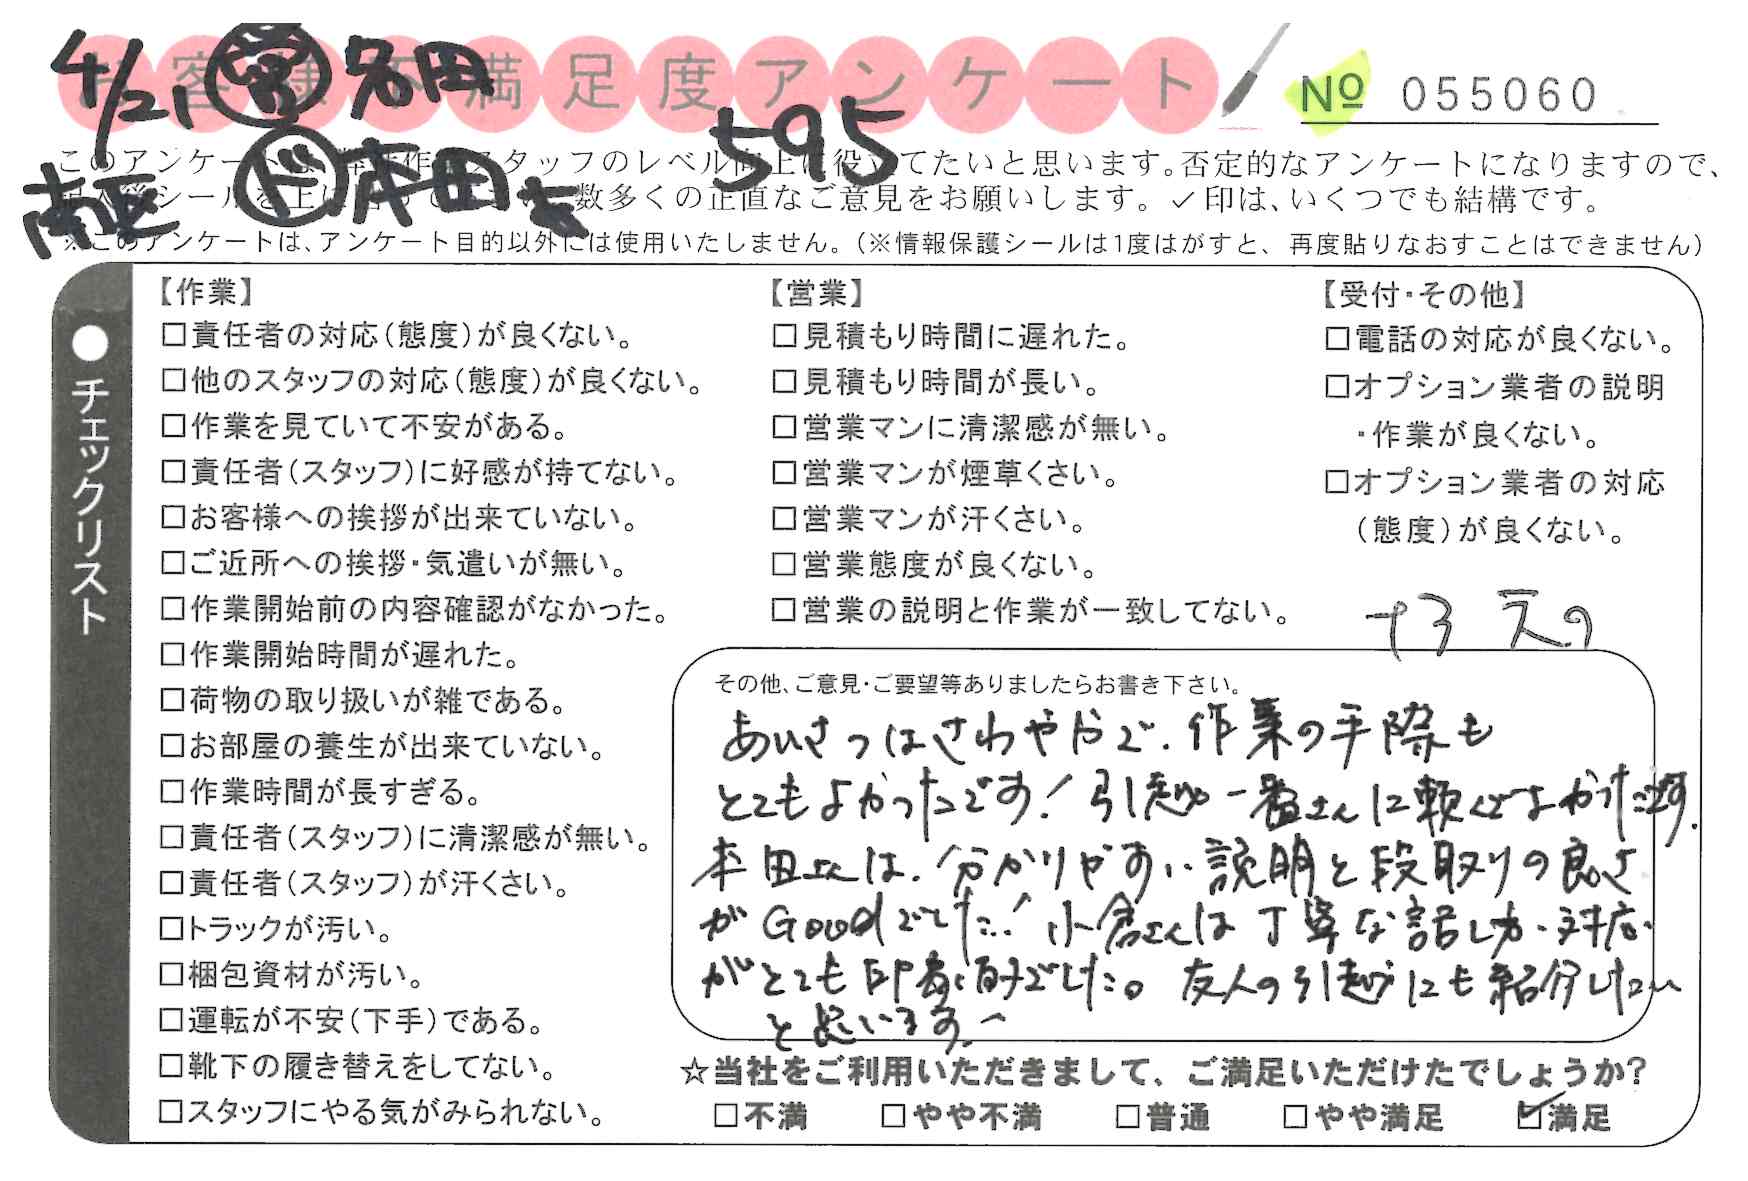 4/21 営 名田
お客様不満足度アンケート
595
№ 055060
南平 ド 本田
このアンケートは、弊社作業スタッフのレベル向上に役立てたいと思います。否定的なアンケートになりますので、
シールを上に 数多くの正直なご意見をお願いします。✓印は、いくつでも結構です。
※このアンケートは、アンケート目的以外には使用いたしません。(※情報保護シールは1度はがすと、再度貼りなおすことはできません)
●チェックリスト
【作業】
□責任者の対応(態度)が良くない。
□他のスタッフの対応(態度)が良くない。
□作業を見ていて不安がある。
□責任者(スタッフ)に好感が持てない。
□お客様への挨拶が出来ていない。
□ご近所への挨拶・気遣いが無い。
□作業開始前の内容確認がなかった。
□作業開始時間が遅れた。
□荷物の取り扱いが雑である。
□お部屋の養生が出来ていない。
□作業時間が長すぎる。
□責任者(スタッフ)に清潔感が無い。
□責任者(スタッフ)が汗くさい。
□トラックが汚い。
□梱包資材が汚い。
□運転が不安(下手)である。
□靴下の履き替えをしてない。
□スタッフにやる気がみられない。
【営業】
□見積もり時間に遅れた。
□見積もり時間が長い。
□営業マンに清潔感が無い。
□営業マンが煙草くさい。
□営業マンが汗くさい。
□営業態度が良くない。
□営業の説明と作業が一致してない。
【受付・その他】
□電話の対応が良くない。
□オプション業者の説明
・作業が良くない。
□オプション業者の対応
(態度)が良くない。
その他、ご意見・ご要望等ありましたらお書き下さい。
あいさつはさわやかで、作業の手際も
とてもよかったです！引越一番さんに頼んでよかったです。
本田さんは、分かりやすい説明と段取りの良さ
がGoodでした！小倉さんは丁寧な話し方・対応
がとても印象的でした。友人の引越にも紹介したい
と思います！
☆当社をご利用いただきまして、ご満足いただけたでしょうか?
□不満 □やや不満 □普通 □やや満足 ☑満足